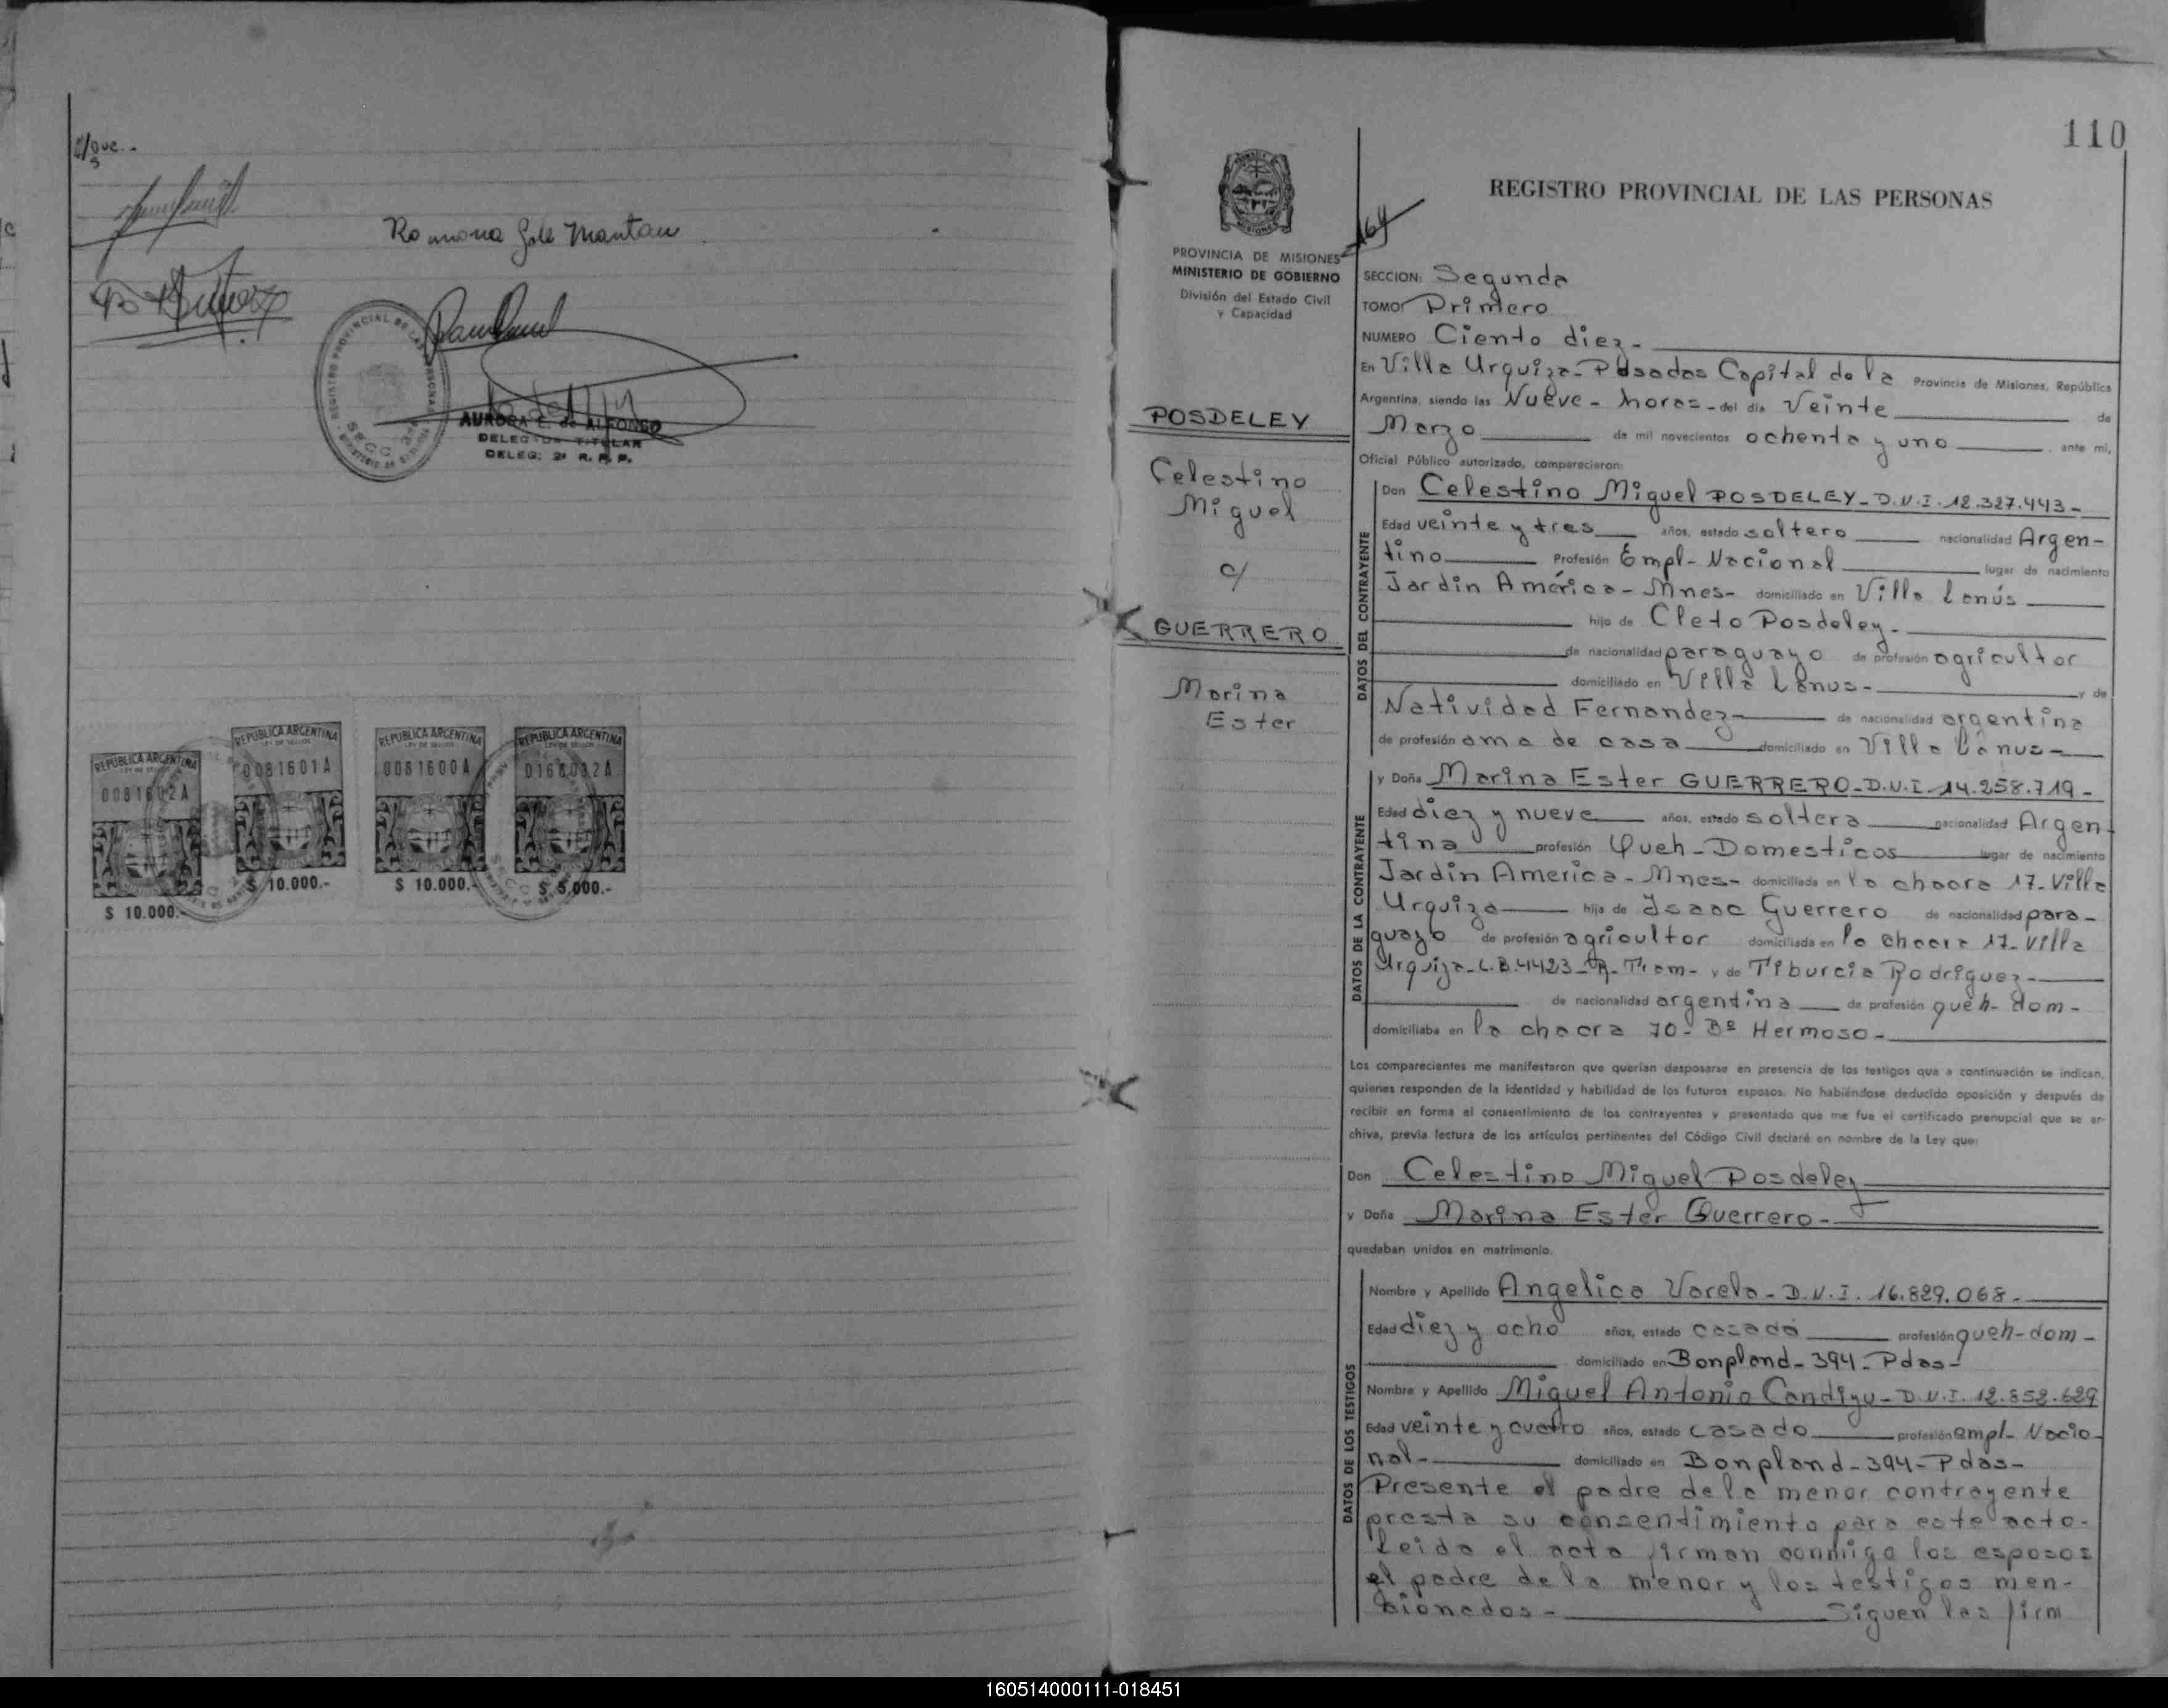 Ramona Sole Mantau
REGISTRO PROVINCIAL DE LAS PERSONAS
SECC. 2ª
AURORA E. de ALFONSO
DELEGADA TITULAR
DELEG: 2ª R. P. P.
REPUBLICA ARGENTINA
LEY DE SELLOS
0081602A
$ 10.000.-
REPUBLICA ARGENTINA
LEY DE SELLOS
0081601A
$ 10.000.-
REPUBLICA ARGENTINA
LEY DE SELLOS
0081600A
$ 10.000.-
REPUBLICA ARGENTINA
LEY DE SELLOS
$ 5.000.-
110
PROVINCIA DE MISIONES
MINISTERIO DE GOBIERNO
División del Estado Civil
y Capacidad
POSDELEY
Celestino
Miguel
c/
GUERRERO
Marina
Ester
REGISTRO PROVINCIAL DE LAS PERSONAS
164
SECCION: Segunda
TOMO: Primero
NUMERO Ciento diez-
En Villa Urquiza-Posadas Capital de la Provincia de Misiones, República
Argentina, siendo las Nueve- horas-del día Veinte de
Marzo de mil novecientos ochenta y uno, ante mi,
Oficial Público autorizado, comparecieron:
DATOS DEL CONTRAYENTE
Don Celestino Miguel POSDELEY-D.N.I.12.327.443-
Edad veinte y tres años, estado soltero nacionalidad Argen-
tino Profesión Empl-Nacional lugar de nacimiento
Jardin América-Mnes- domiciliado en Villa Lanús
hijo de Cleto Posdeley-
de nacionalidad paraguayo de profesión agricultor
domiciliado en Villa Lanus- y de
Natividad Fernandez- de nacionalidad argentina
de profesión ama de casa domiciliado en Villa Lanus-
DATOS DE LA CONTRAYENTE
y Doña Marina Ester GUERRERO-D.N.I-14.258.719-
Edad diez y nueve años, estado soltera nacionalidad Argen-
tina profesión Queh-Domesticos lugar de nacimiento
Jardin America-Mnes- domiciliada en la chacra 17-Villa
Urquiza hija de Isaac Guerrero de nacionalidad para-
guayo de profesión agricultor domiciliada en la chacra 17-Villa
Urquiza-C.B.4423-R-Tram- y de Tiburcia Rodriguez-
de nacionalidad argentina de profesión queh-dom-
domiciliaba en la chacra 70-Bº Hermoso-
Los comparecientes me manifestaron que querían desposarse en presencia de los testigos que a continuación se indican,
quienes responden de la identidad y habilidad de los futuros esposos. No habiéndose deducido oposición y después de
recibir en forma el consentimiento de los contrayentes y presentado que me fue el certificado prenupcial que se ar-
chiva, previa lectura de los artículos pertinentes del Código Civil declaré en nombre de la Ley que:
Don Celestino Miguel Posdeley
y Doña Marina Ester Guerrero-
quedaban unidos en matrimonio.
DATOS DE LOS TESTIGOS
Nombre y Apellido Angelica Varela-D.N.I.16.829.068-
Edad diez y ocho años, estado casada profesión queh-dom-
domiciliado en Bonpland-394-Pdas-
Nombre y Apellido Miguel Antonio Candiyu-D.N.I.12.852.629
Edad veinte y cuatro años, estado casado profesión empl-Nacio-
nal- domiciliado en Bonpland-394-Pdas-
Presente el padre de la menor contrayente
presta su consentimiento para este acto-
Leida el acta firman conmigo los esposos
el padre de la menor y los testigos men-
cionados- Siguen las firm
160514000111-018451